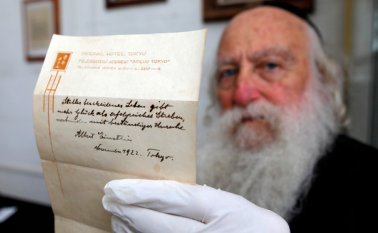 IMPERIAL HOTEL, TOKYO
TELEGRAPHIC ADDRESS "IMPHO TOKYO"
Stilles bescheidenes Leben gibt
mehr Glück als erfolgreiches Streben,
verbunden mit beständiger Unruhe.
Albert Einstein
November 1922. Tokyo.